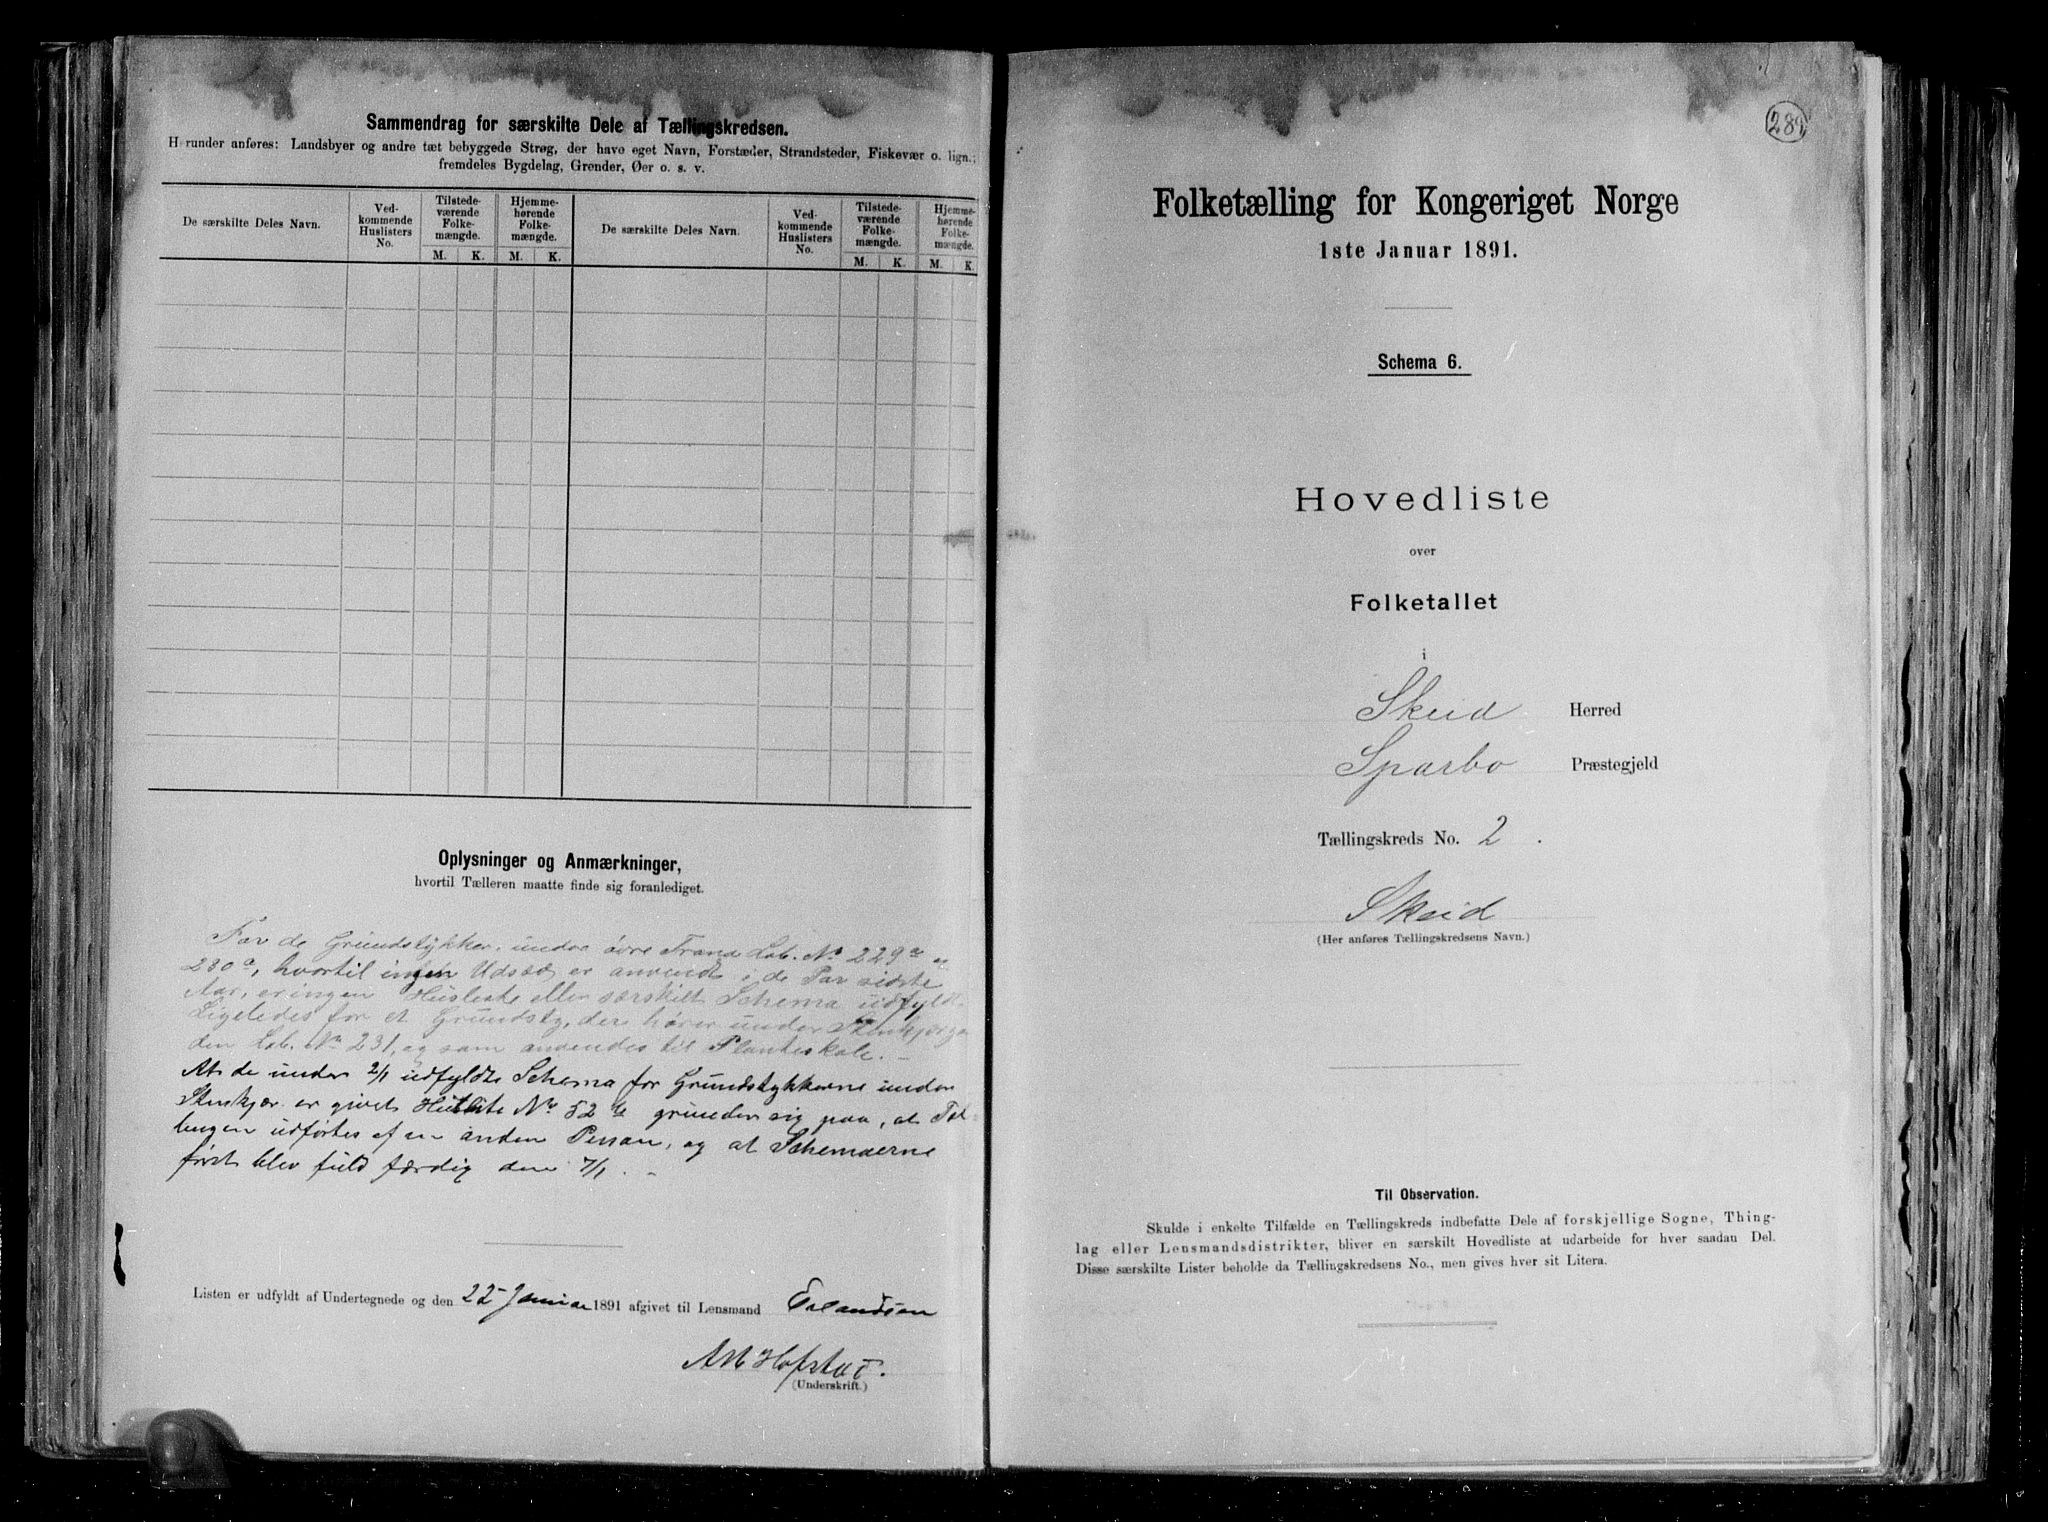 Sammendrag for særskilte Dele af Tællingskredsen.
Herunder anføres: Landsbyer og andre tæt bebyggede Strøg, der have eget Navn, Forstæder, Strandsteder, Fiskevær o. lign.;
fremdeles Bygdelag, Grender, Øer o. s. v.
De særskilte Deles Navn.
Ved-
kommende
Huslisters
No.
Tilstede-
værende
Folke-
mængde.
Hjemme-
hørende
Folke-
mængde.
De særskilte Deles Navn.
Ved-
kommende
Huslisters
No.
Tilstede-
værende
Folke-
mængde.
Hjemme-
hørende
Folke-
mængde.
M. K. M. K. M. K. M. K.
Oplysninger og Anmærkninger,
hvortil Tælleren maatte finde sig foranlediget.
For de Grundstykker, under øvre Trana Løb. No 229a og
230a, hvortil ingen Udsæd er anvendt i de Par sidste
Aar, er ingen Husliste eller særskilt Schema udfyldt.
Ligeledes for et Grundst., der hører under
den Løb. No 231, og som anvendes til Planteskole. –
At de under 2/1 udfyldte Schema for Grundstykkerne under
Stenkjær er givet Husliste No 52 grunder sig paa, at Tæl-
lingen udførtes af en anden Person, og at Schemaerne
først blev fuld færdig den 7/1. –
Listen er udfyldt af Undertegnede og den 22 Januar 1891 afgivet til Lensmand Erlandsen
Hofstad.
(Underskrift.)
289
Folketælling for Kongeriget Norge
1ste Januar 1891.
Schema 6.
Hovedliste
over
Folketallet
i
Skeid Herred
Sparbo Præstegjeld
Tællingskreds No. 2.
Skeid
(Her anføres Tællingskredsens Navn.)
Til Observation.
Skulde i enkelte Tilfælde en Tællingskreds indbefatte Dele af forskjellige Sogne, Thing-
lag eller Lensmandsdistrikter, bliver en særskilt Hovedliste at udarbeide for hver saadan Del.
Disse særskilte Lister beholde da Tællingskredsens No., men gives hver sit Litera.